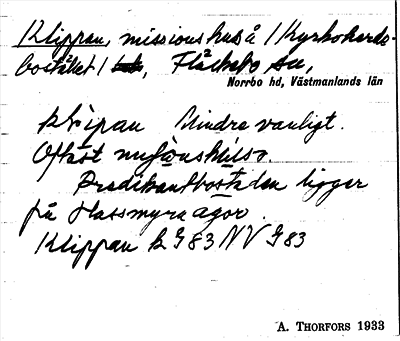 Klippan, missionshus å / Kyrkoherde-
bostället /, Fläckebo sn,
Norrbo hd, Västmanlands län
klìpan Mindre vanligt.
Oftast
Predikantbostaden ligger
på Hassmyra ägor.
Klippan k G 83 NV G 83
A. THORFORS 1933